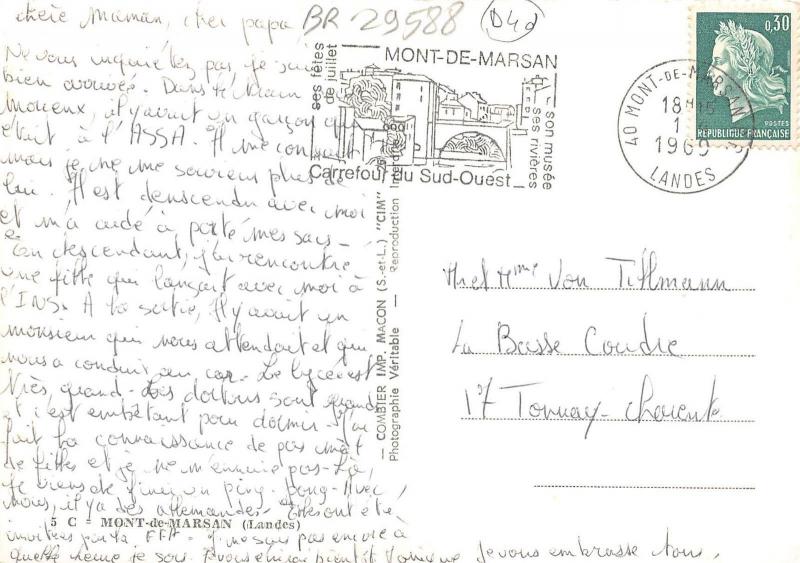 chère Maman, cher papa
BR 29588
D4d
Ne vous inquiétez pas je suis
bien arrivée. Dans le train
Morcenx, il y avait un garçon qui
était à l'ASSA. Il me connait
mais je ne me souviens plus de
lui. Il est denscendu avec moi
et m'a aidé à porté mes sacs -
En descendant, j'ai rencontré
une fille qui lançait avec moi à
l'INS. A la sortie, il y avait un
monsieur qui nous attendait et qui
nous a conduit en car. Le lycée est
très grand. Les dortoirs sont grands
et c'est embêtant pour dormir. J'ai
fait la connaissance de pas mal
de filles et je ne m'ennuie pas. Là,
je viens de finir un ping-pong. Avec
nous, il y a des allemandes. Elles ont été
invitées par la FFA. Je ne sais pas encore à
quelle heure je Je vous embrasse tous,
5 C - MONT-de-MARSAN (Landes)
— COMBIER IMP. MACON (S.-et-L.) "CIM" —
Photographie Véritable — Reproduction
ses fêtes
de juillet
MONT-DE-MARSAN
son musée
ses rivières
Carrefour du Sud-Ouest
40 MONT-DE-MARSAN
18H
1969
LANDES
0,30
POSTES
RÉPUBLIQUE FRANÇAISE
M et Mme Von Tillmann
La Basse Coudre
17 Tonnay-charente